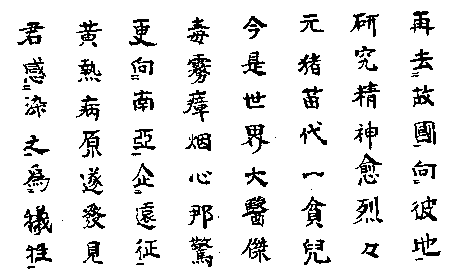 再去故國向彼地
研究精神愈烈々
元猪苗代一貧兒
今是世界大醫傑
毒霧瘴烟心那驚
更向南亞企遠征
黃熱病原遂發見
君感染之為犠牲